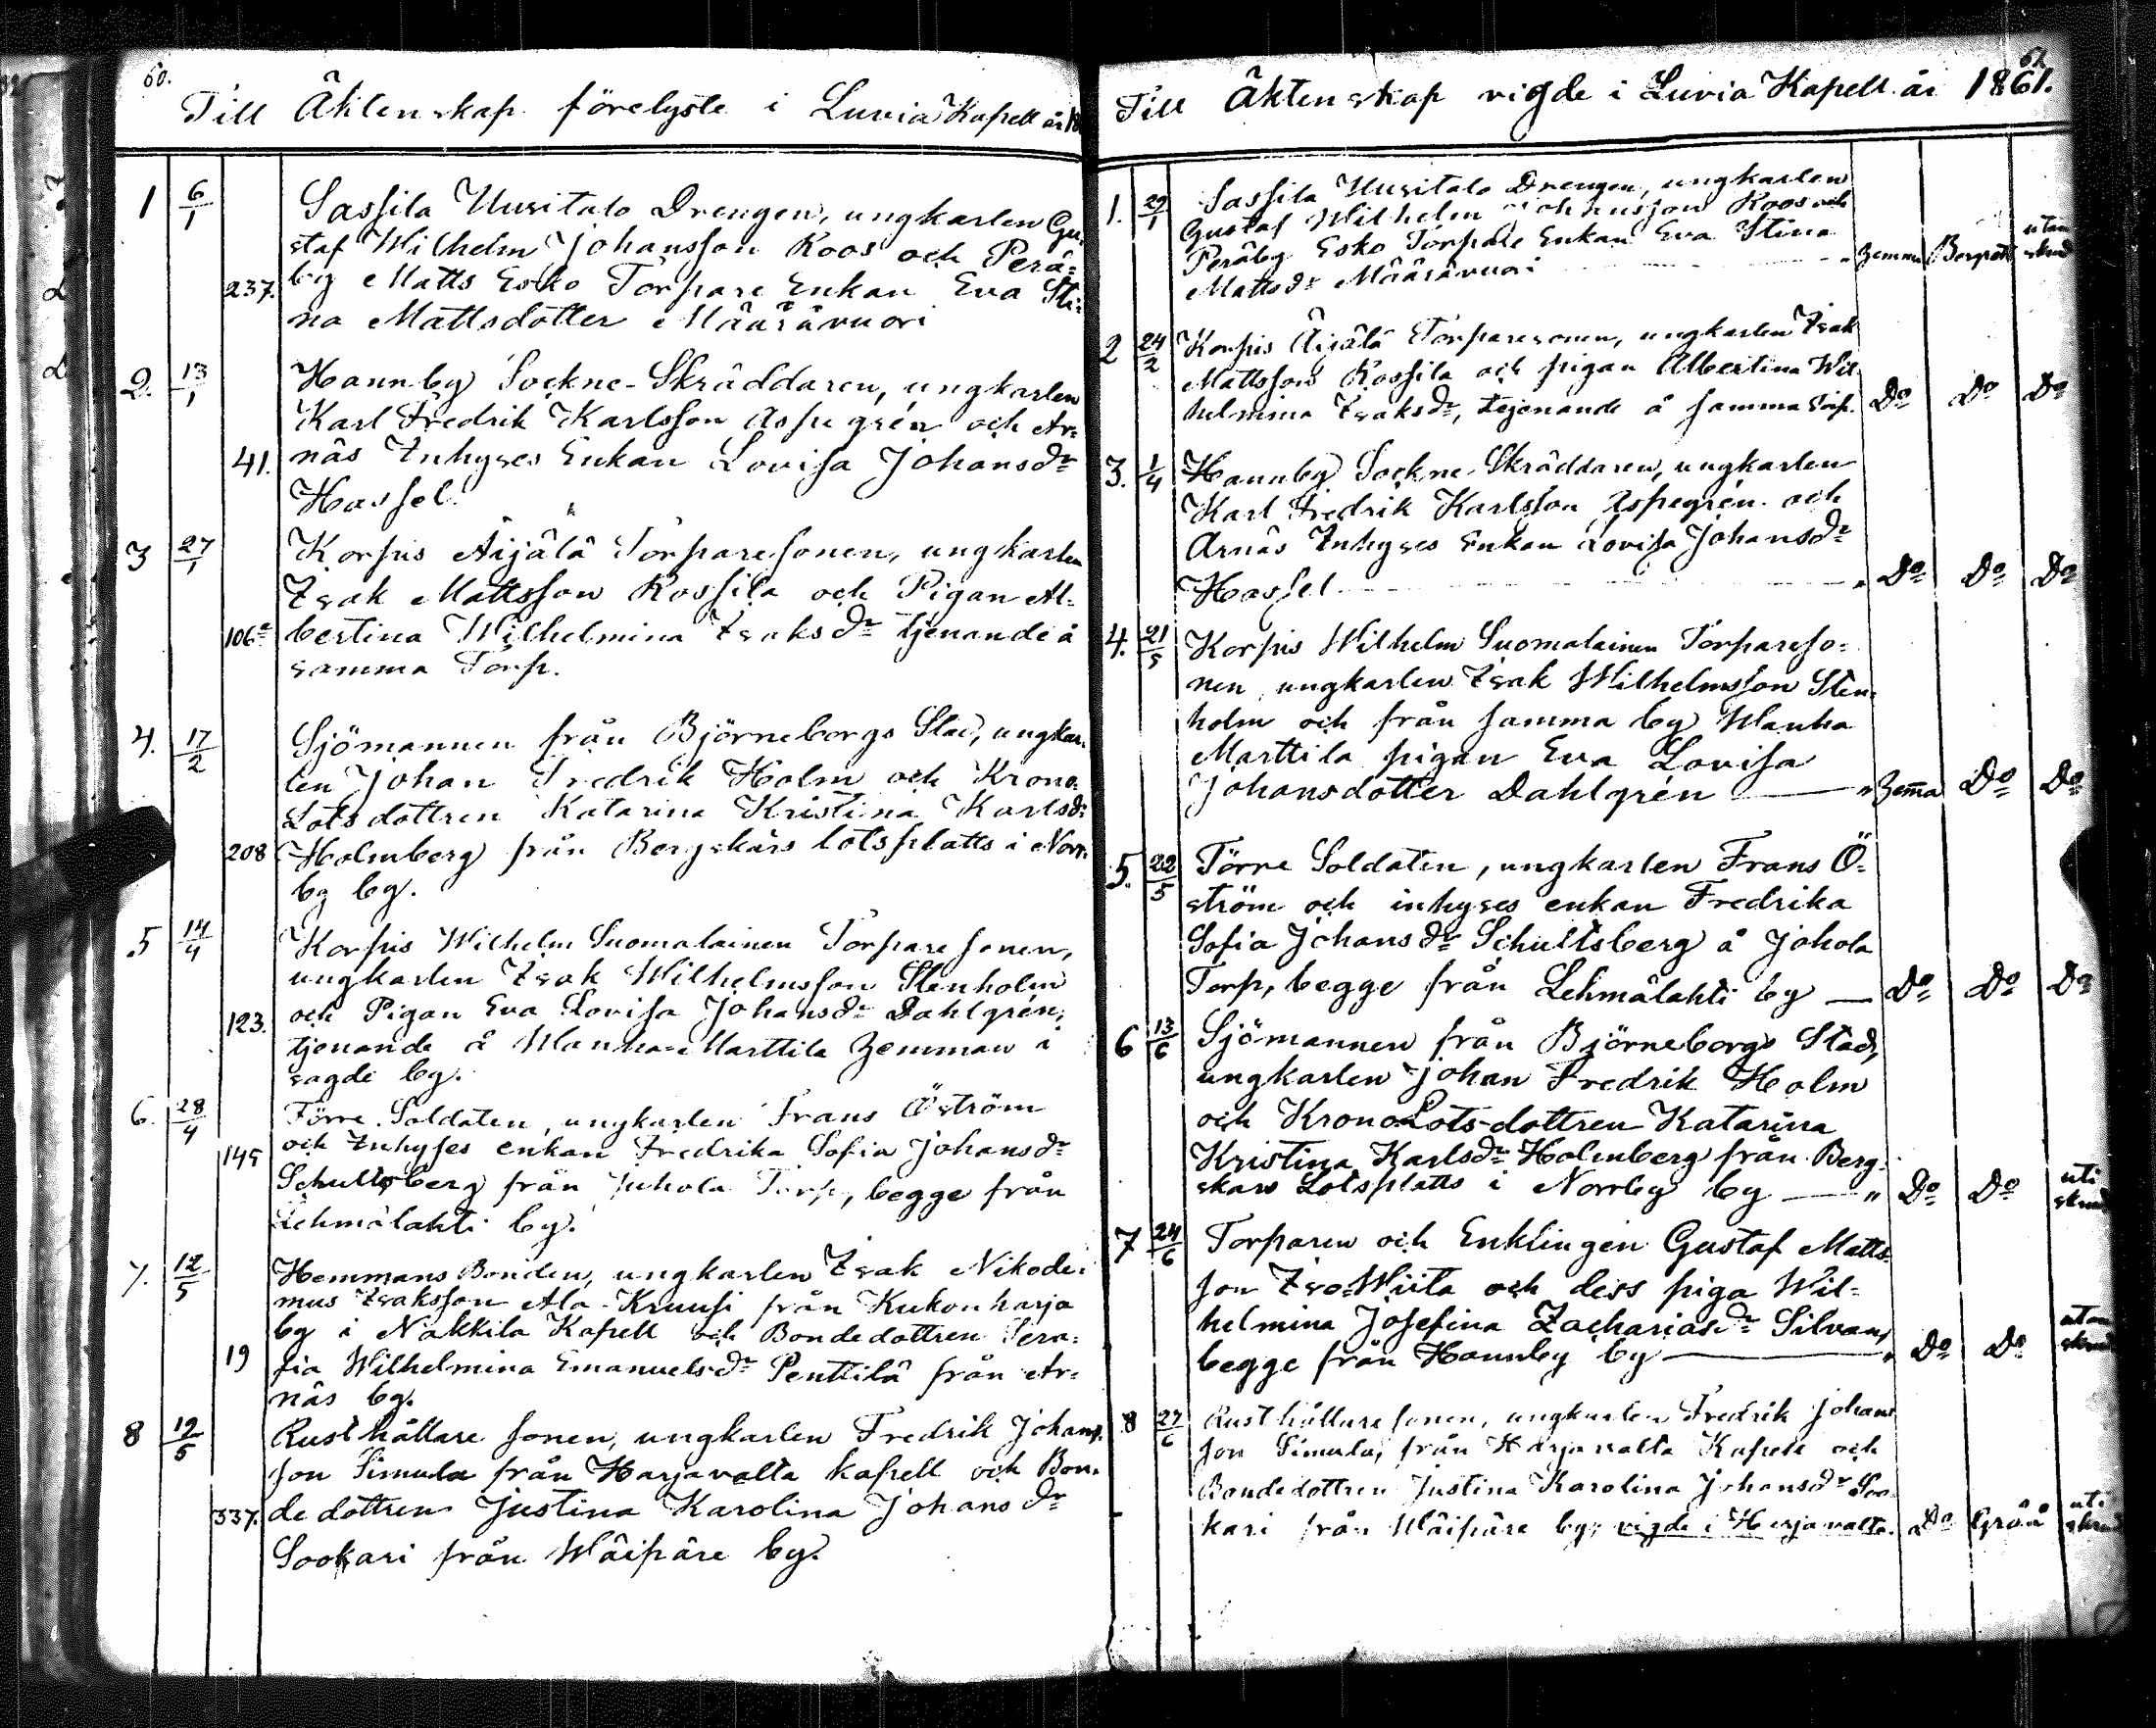 60.
Till Äktenskap förelyste i Luvia Kapell år 18
1 6/1 Sassila Uusitalo Drengen, ungkarlen Gu-
staf Wilhelm Johansson Roos och Perä-
237. by Matts Esko Torpare Enkan Eva Sti-
na Mattsdotter Määrävuori
2. 13/1 Hannby Sockne-Skräddaren, ungkarlen
Karl Fredrik Karlsson Aspegrén och Ar-
41. näs Inhyses Enkan Lovisa Johansdr
Hassel.
3 27/1 Korpis Äijälä Torparesonen, ungkarlen
Isak Mattsson Rossila och Pigan Al-
106a bertina Wilhelmina Isaksdr tjenande å
samma Torp.
4. 17/2 Sjömannen från Björneborgs Stad, ungkar-
len Johan Fredrik Holm och Krono-
Lotsdottren Katarina Kristina Karlsdr
208 Holmberg från Bergskärs lotsplatts i Norr-
by by.
5 14/4 Korpis Wilhelm Suomalainen Torpare sonen,
ungkarlen Isak Wilhelmsson Stenholm
123. och Pigan Eva Lovisa Johansdr Dahlgrén,
tjenande å Wanha-Marttila Hemman i
sagde by.
6. 28/4 Förre Soldaten, ungkarlen Frans Öström
145 och Inhyses enkan Fredrika Sofia Johansdr
Schultsberg från Juhola Torp, begge från
Lehmälahti by.
7. 12/5 Hemmans Bonden, ungkarlen Isak Nikode-
mus Isaksson Ala-Kruusi från Kukonharja
by i Nakkila Kapell och Bondedottren Sera-
19 fia Wilhelmina Emanuelsdr Penttilä från Ar-
näs by.
8 12/5 Rusthållare sonen, ungkarlen Fredrik Johans-
son Simula från Harjavalta kapell och Bon-
337. dedottren Justina Karolina Johansdr
Sookari från Wäipäre by.
61.
Till Äktenskap vigde i Luvia Kapell år 1861.
1. 29/1 Sassila Uusitalo Drengen, ungkarlen
Gustaf Wilhelm Johansson Roos och
Peräby Esko Torpare Enkan Eva Stina
Mattsdr Määrävuori " Hemma Bergroth utan skrud
2 24/2 Korpis Äijälä Torparesonen, ungkarlen Isak
Mattsson Rossila och pigan Albertina Wil-
helmina Isaksdr, tejenande å samma torp. Do Do Do
3. 1/4 Hannby Sockne-Skräddaren, ungkarlen
Karl Fredrik Karlsson Aspegrén och
Arnäs Inhyses Enkan Lovisa Johansdr
Hassel " Do Do Do
4. 21/5 Korpis Wilhelm Suomalainen Torpareso-
nen, ungkarlen Isak Wilhelmsson Sten-
holm och från samma by Wanha
Marttila pigan Eva Lovisa
Johansdotter Dahlgrén — " Hemma Do Do
5. 22/5 Förre Soldaten, ungkarlen Frans Ö-
ström och inhyses enkan Fredrika
Sofia Johansdr Schultsberg å Johola
Torp, begge från Lehmälahti by — Do Do Do
6 13/6 Sjömannen från Björneborgs Stad,
ungkarlen Johan Fredrik Holm
och KronoLots-dottren Katarina
Kristina Karlsdr Holmberg från Berg-
skärs Lotsplatts i Norrby by — " Do Do uti skrud
7 24/6 Torparen och Enklingen Gustaf Matts-
son Iso-Wiita och dess piga Wil-
helmina Josefina Zachariasdr Silvan,
begge från Hannby by — " Do Do utan skrud
8 27/6 Rusthållare sonen, ungkarlen Fredrik Johans
son Simula, från Harjavalta Kapell och
Bondedottren Justina Karolina Johansdr Soo-
kari från Wäipäre by, vigde i Harjavalta. Do Gröå uti skrud